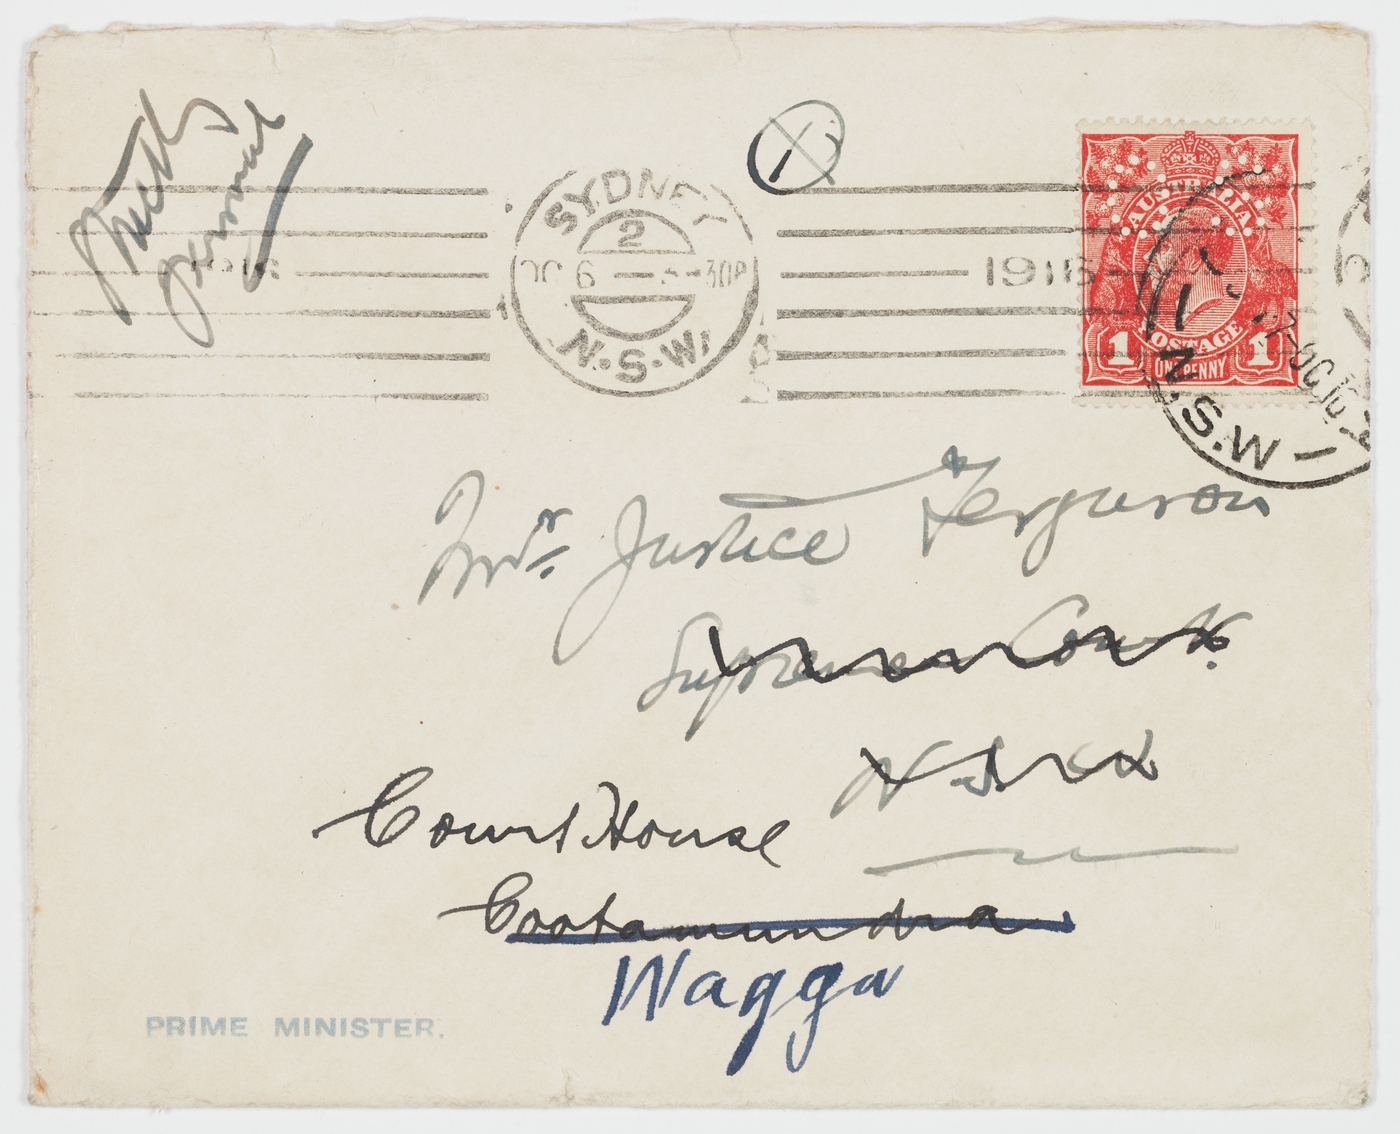 Strictly
personal
1
SYDNEY
2
OC 6 - 5-30P
N.S.W.
1916
AUSTRALIA
POSTAGE
1 ONE PENNY 1
7-OC16
N.S.W
Mr. Justice Ferguson
Supreme Court.
N.S.W
Court House
Cootamundra
Wagga
PRIME MINISTER.